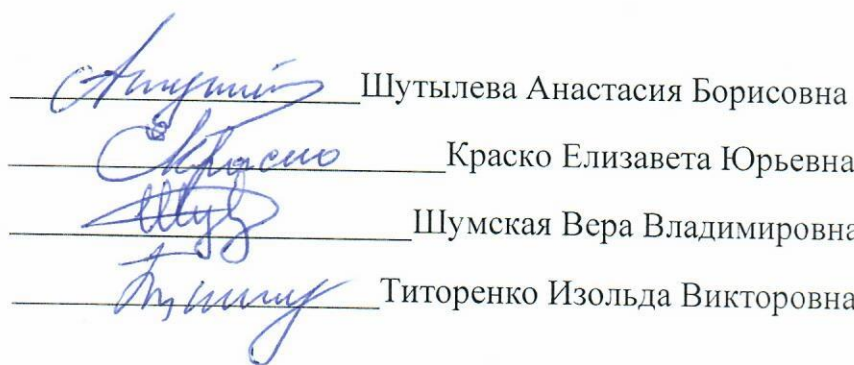 Шутылева Анастасия Борисовна
Краско Елизавета Юрьевна
Шумская Вера Владимировна
Титоренко Изольда Викторовна